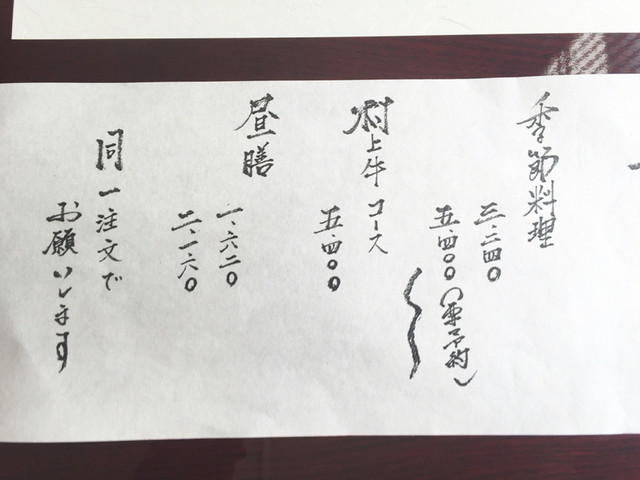 季節料理
三、二四〇
五、四〇〇(要予約)
〜
村上牛コース
五、四〇〇
昼膳
一、六二〇
二、一六〇
同一注文で
お願いします